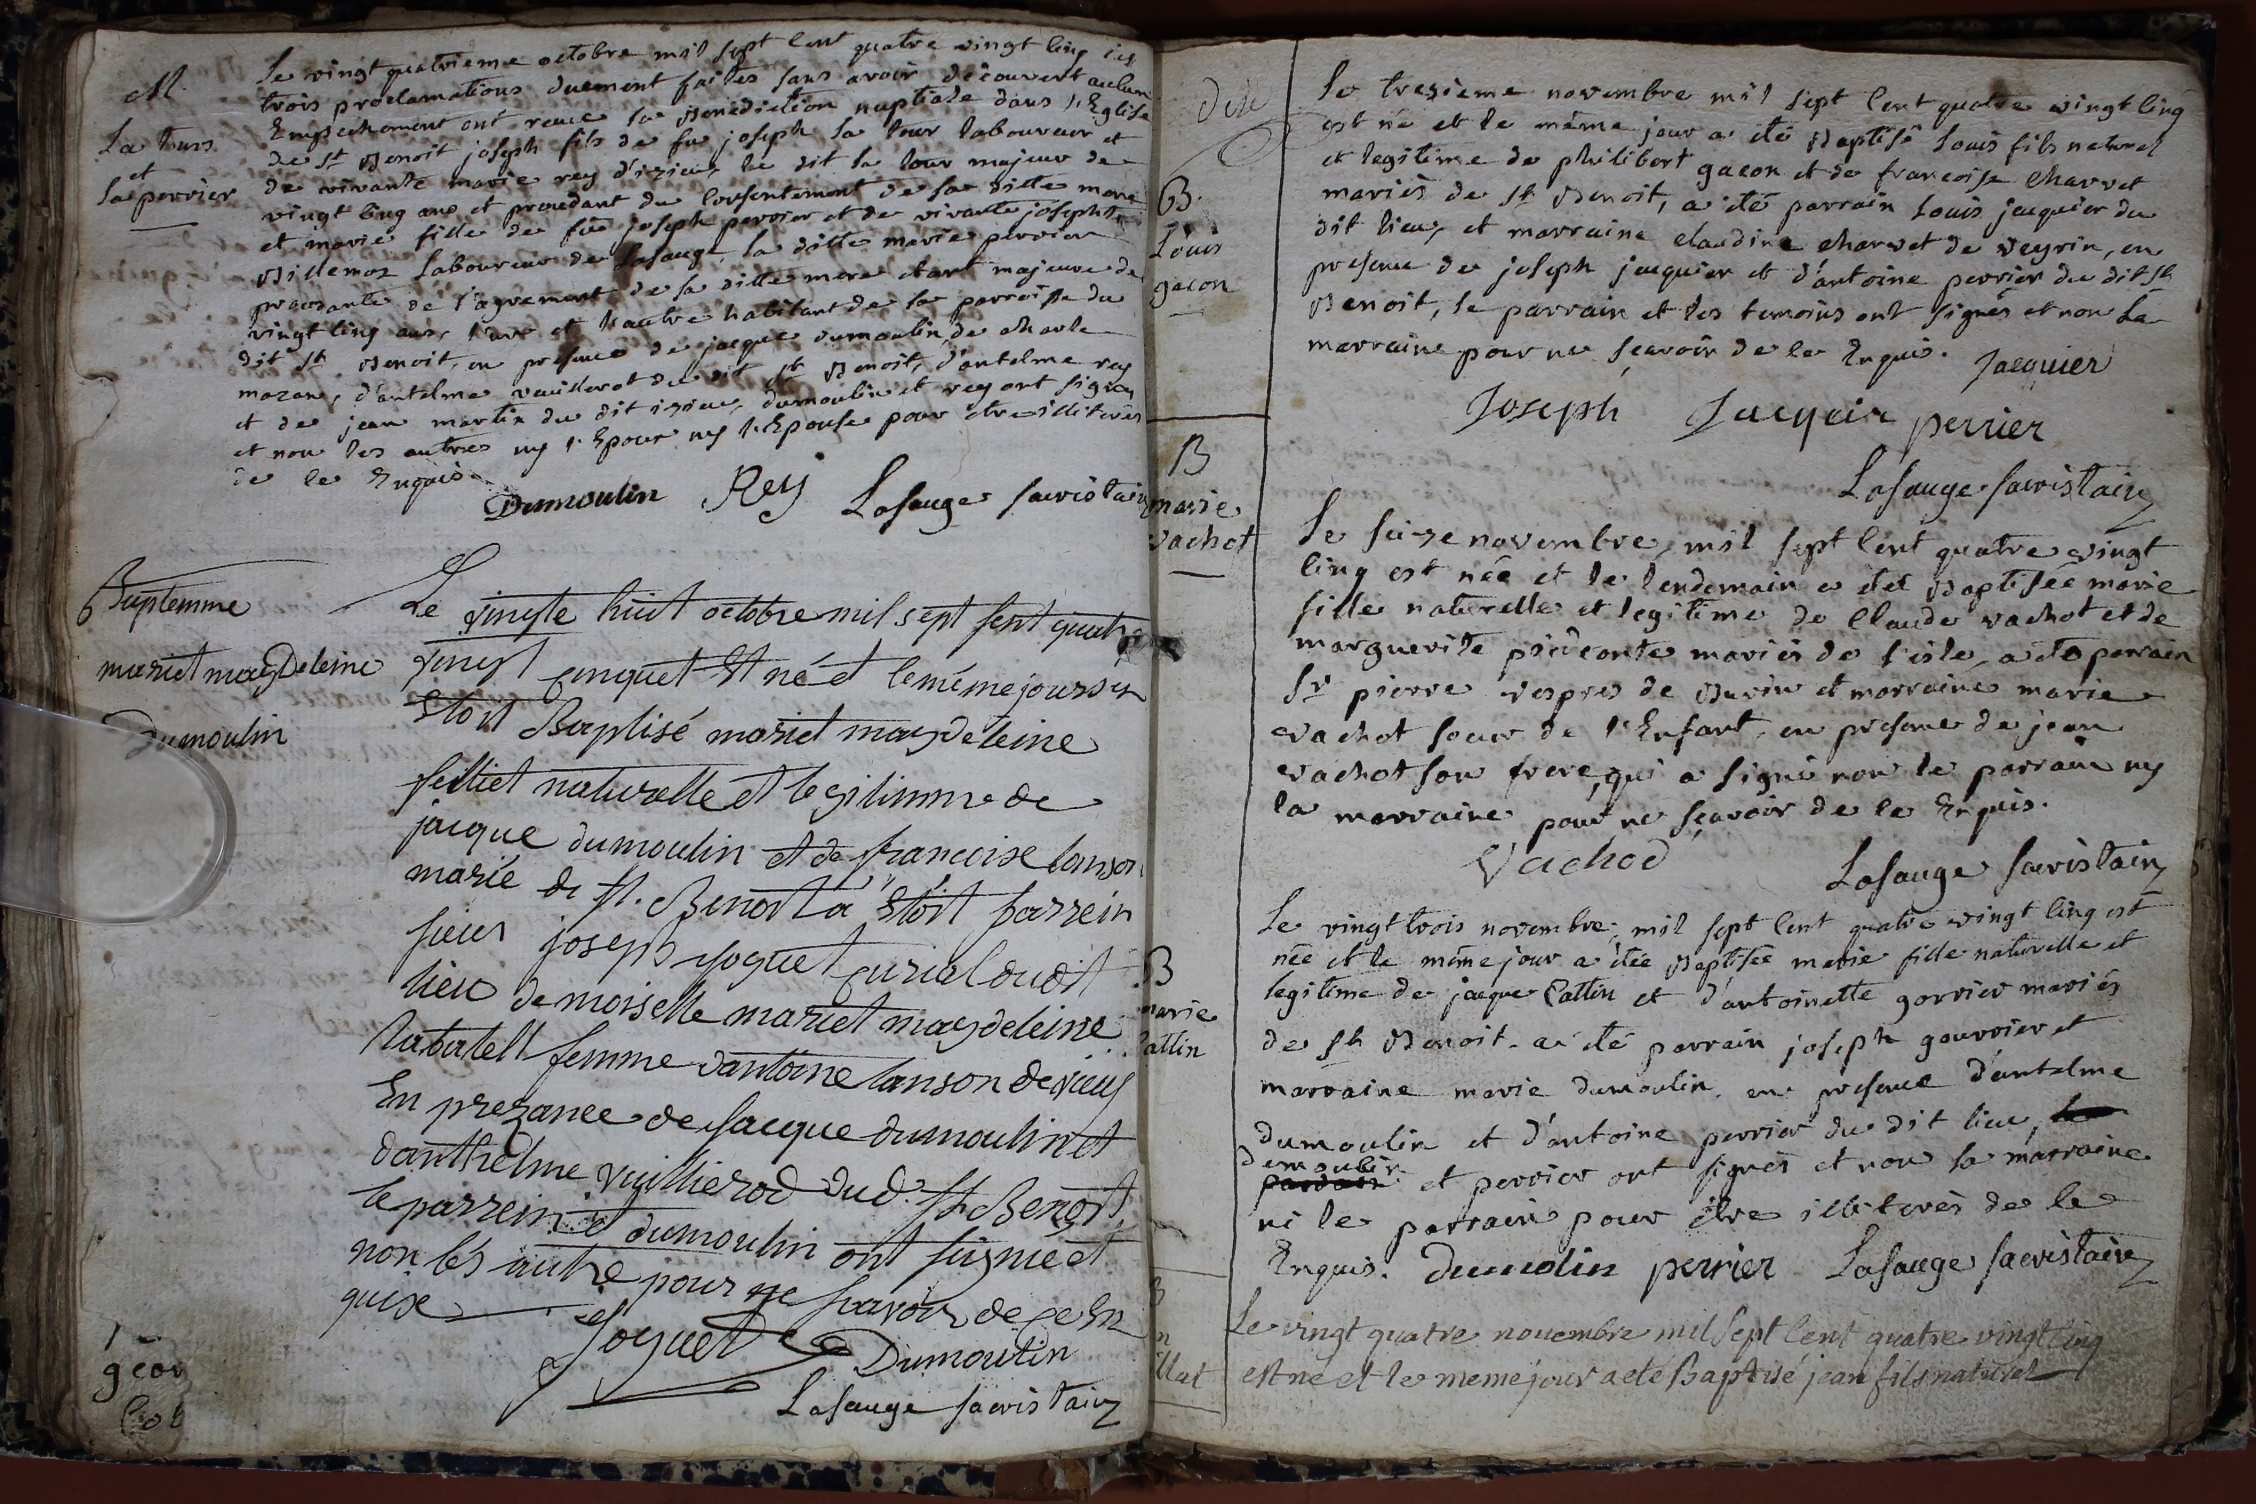 M.
La tour
et
la perrier
Le vingt quatrieme octobre mil sept cent quatre vingt cinq les
trois proclamations duement faites sans avoir découvert aucun
Empechement ont reçue la Benediction nuptiale dans l'Eglise
de st Benoit joseph fils de fu joseph la tour laboureur et
de vivante marie rey d'izieu, le dit la tour majeur de
vingt cinq ans et procedant du consentement de sa ditte mere
et marie fille de fû joseph perrier et de vivante josephte
Billemaz laboureur de Lasauge la ditte marie perrier
procedante de l'agrement de sa ditte mere etant majeure de
vingt cinq ans, l'un et l'autre habitant de la parroisse du
dit st Benoit, en presence de jacque dumoulin, de charle
mozan, d'antelme vuillerot du dit st Benoit, d'antelme rey
et de jean martin du dit izieu, dumoulin et rey ont signés
et non les autres ny l'Epoux ny l'Epouse pour etre illiterés
de ce Enquis
Dumoulin Rey Lasauge sacristain
Buptemme
mariet magdeleine
Dumoulin
Le vingte huit octobre mil sept sent quatre
vingt cinquet Et né et le méme jours
Etoit Baptisé mariet magdeleine
filliet naturelle et legitimme de
jacque dumoulin et de francoise lanson
marié de st. Benoit a Etoit parrein
sieur joseph joguet curial dudit
lieu demoiselle mariet magdeleine
Rabatell femme dantoine lanson de
En prezance de Jacque dumoulin et
danthelme vuillierod dud. st. Benoit
le parrein et dumoulin ont signié et
non lés autre pour ne savoir de ce En
quise
Joguet Dumoulin
Lasauge sacristain
B.
Louis
gacon
Le trezieme novembre mil sept cent quatre vingt cinq
est né et le même jour a été Baptisé Louis fils naturel
et legitime de philibert gacon et de francoise charvet
mariés de st Benoit, a été parrain Louis jacquier du
dit lieu, et marraine claudine charvet de veyrin, en
presence de joseph jacquier et d'antoine perrier du dit st
Benoit, le parrain et les temoins ont signés et non la
marraine pour ne sçavoir de ce Enquis. Jacquier
Joseph Jacquier perrier
Lasauge sacristain
B
marie
vachot
Le seize novembre, mil sept cent quatre vingt
cinq est née et le lendemain a été Baptisée marie
fille naturelle et legitime de claude vachot et de
marguerite mariés de l'isle, a été parrain
Sr pierre vespres de et marraine marie
vachot soeur de l'Enfant, en presence de jean
vachot son frere, qui a signé non le parrain ny
la marraine pour ne sçavoir de ce Enquis.
Vachod Lasauge sacristain
B
marie
Cattin
Le vingt trois novembre, mil sept cent quatre vingt cinq est
née et le même jour a étée Baptisée marie fille naturelle et
legitime de jacque Cattin et d'antoinette gorrier mariés
de st Benoit. a été parrain joseph gourrier et
marraine marie dumoulin, en presence d'antelme
dumoulin et d'antoine perrier du dit lieu,
dumoulin et perrier ont signés et non la marraine
ni le parrain pour être illiterés de ce
Enquis. Dumolin perrier Lasauge sacristain
Le vingt quatre novembre mil sept cent quatre vingt cinq
est né et le meme jour a eté Baptisé jean fils naturel